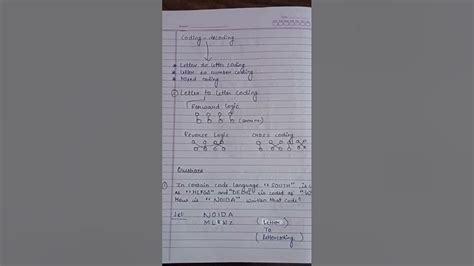 Coding - decoding
* Letter to letter coding
* Letter to number coding
* Mixed coding
① Letter to letter coding
Forward logic
Reverse Logic
Cross coding
Questions
① In certain code language "SOUTH" is
as and "DELHI" is coded as
How is "NOIDA" written that code?
Sol: NOIDA
Letter
To
Lettercoding